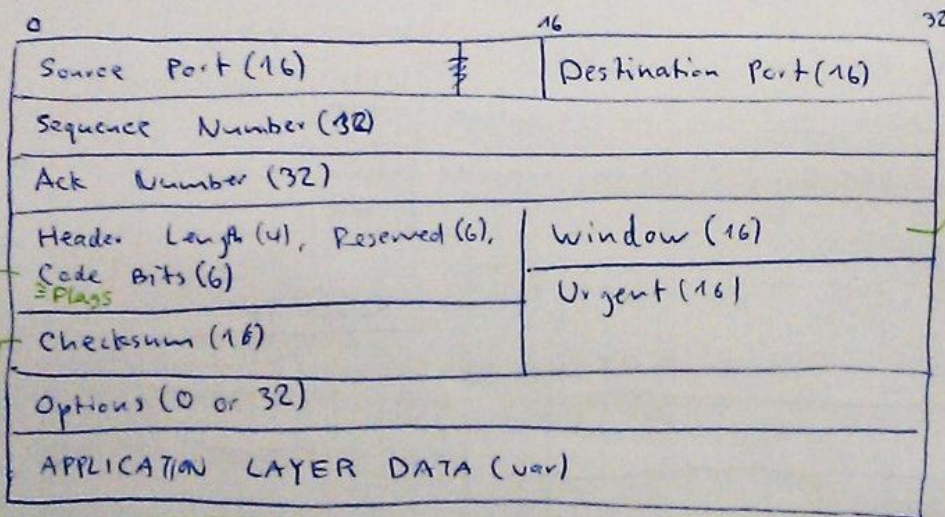 0 16 32
Source Port (16) Destination Port (16)
Sequence Number (32)
Ack Number (32)
Header Length (4), Reserved (6),
Code Bits (6)
≡ Flags
Window (16)
Urgent (16)
Checksum (16)
Options (0 or 32)
APPLICATION LAYER DATA (var)